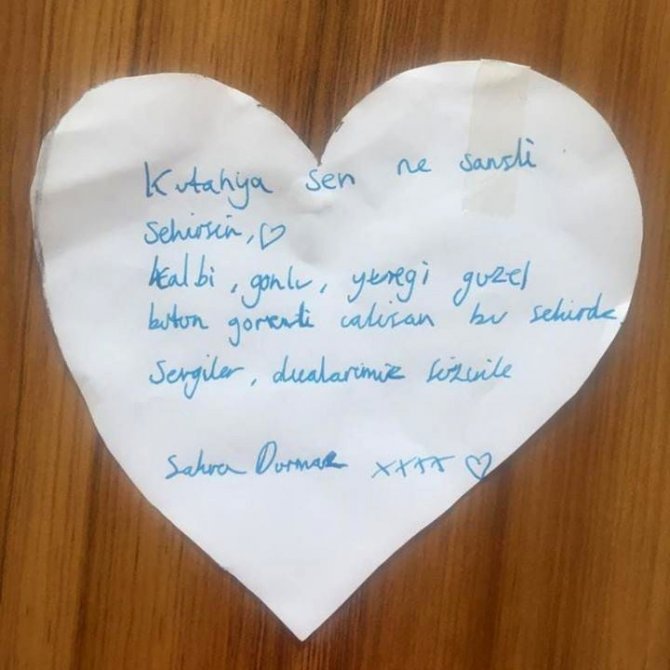 Kutahya sen ne sansli
sehirsin, ♡
kalbi, gonlu, yuregi guzel
butun gorevli calisan bu sehirde
Sevgiler, dualarimiz sizinle
Sahra Durmaz xxxx ♡